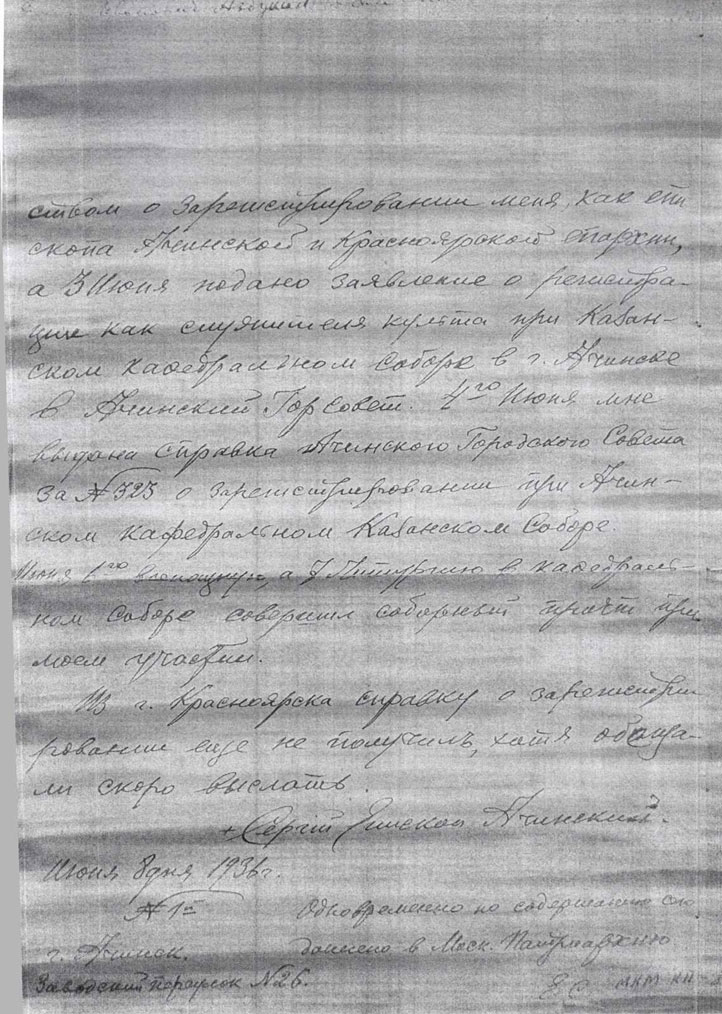 ством о зарегистрировании меня, как епи
скопа Ачинской и Красноярской епархии,
а 3 Июня подано заявление о регистра-
ции как служителя культа при Казан-
ском кафедральном Соборе в г. Ачинске
в Ачинский Горсовет. 4го Июня мне
выдана справка Ачинского Городского Совета
за № 323 о зарегистрировании при Ачин-
ском кафедральном Казанском Соборе.
Июня 6го всенощную, а 7 Литургию в кафедраль-
ном Соборе совершил соборный причт при
моем участии.
Из г. Красноярска справку о зарегистри
ровании еще не получилъ, хотя обеща-
ли скоро выслать.
+ Сергій Епископ Ачинский.
Июня 8 дня 1936 г.
№ 1й Одновременно по содержанию сию
г. Ачинск. донесено в Моск. Патриархию
Заводский переулок № 26. Е С МКМ КП